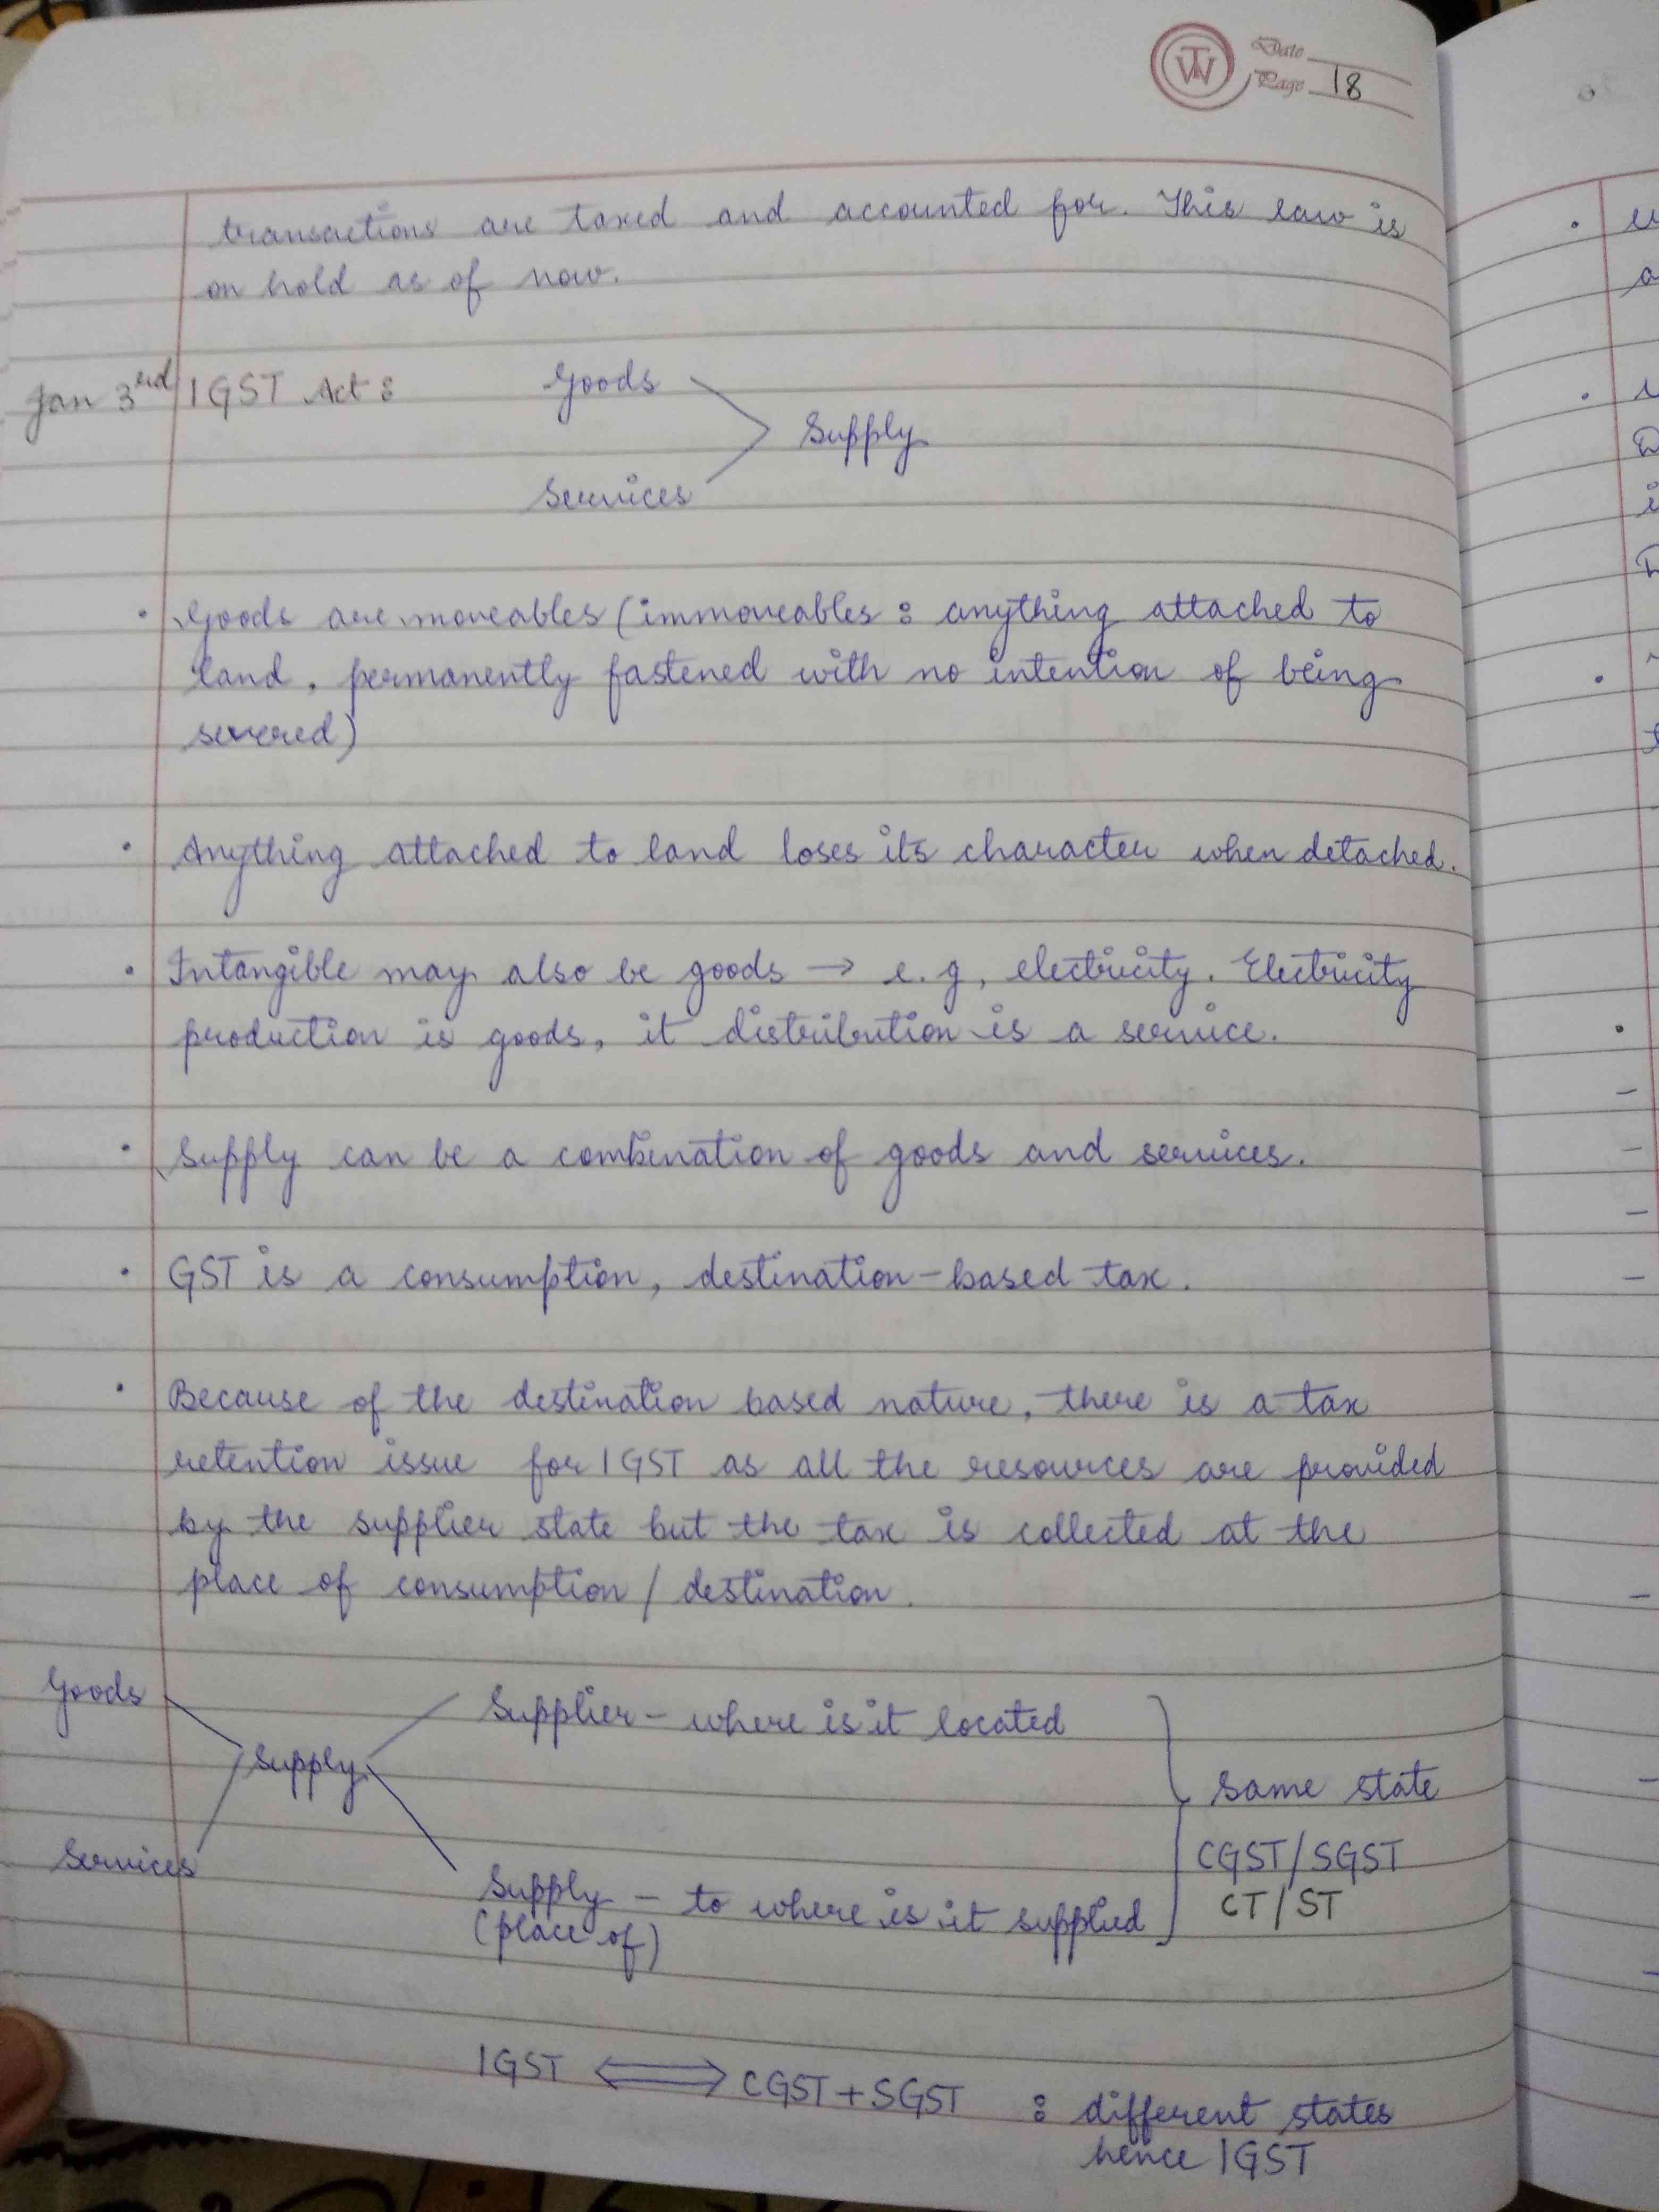 Date
Page 18
transactions are taxed and accounted for. This law is
on hold as of now.
Jan 3rd IGST Act :
Goods
Supply
Services
• Goods are moveables (immoveables : anything attached to
land, permanently fastened with no intention of being
severed)
• Anything attached to land loses its character when detached.
• Intangible may also be goods → e.g, electricity. Electricity
production is goods, it distribution is a service.
• Supply can be a combination of goods and services.
• GST is a consumption, destination-based tax.
• Because of the destination based nature, there is a tax
retention issue for IGST as all the resources are provided
by the supplier state but the tax is collected at the
place of consumption / destination.
Goods
Supplier - where is it located
Supply
same state
Services
CGST/SGST
Supply - to where is it supplied
CT/ST
(place of)
IGST ⟺ CGST+SGST : different states
hence IGST